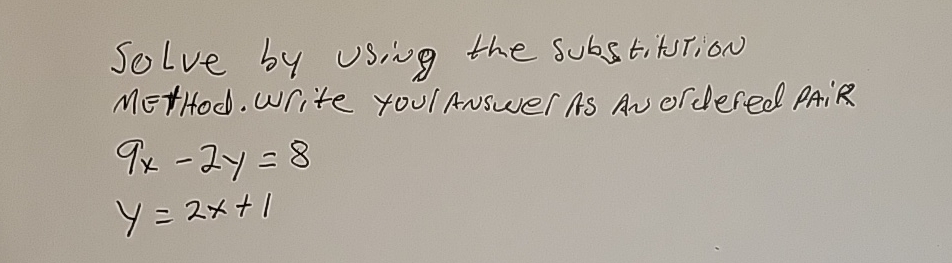 Solve by using the Substitution
METHod. Write your Answer As An ordered PAiR
9x - 2y = 8
y = 2x + 1